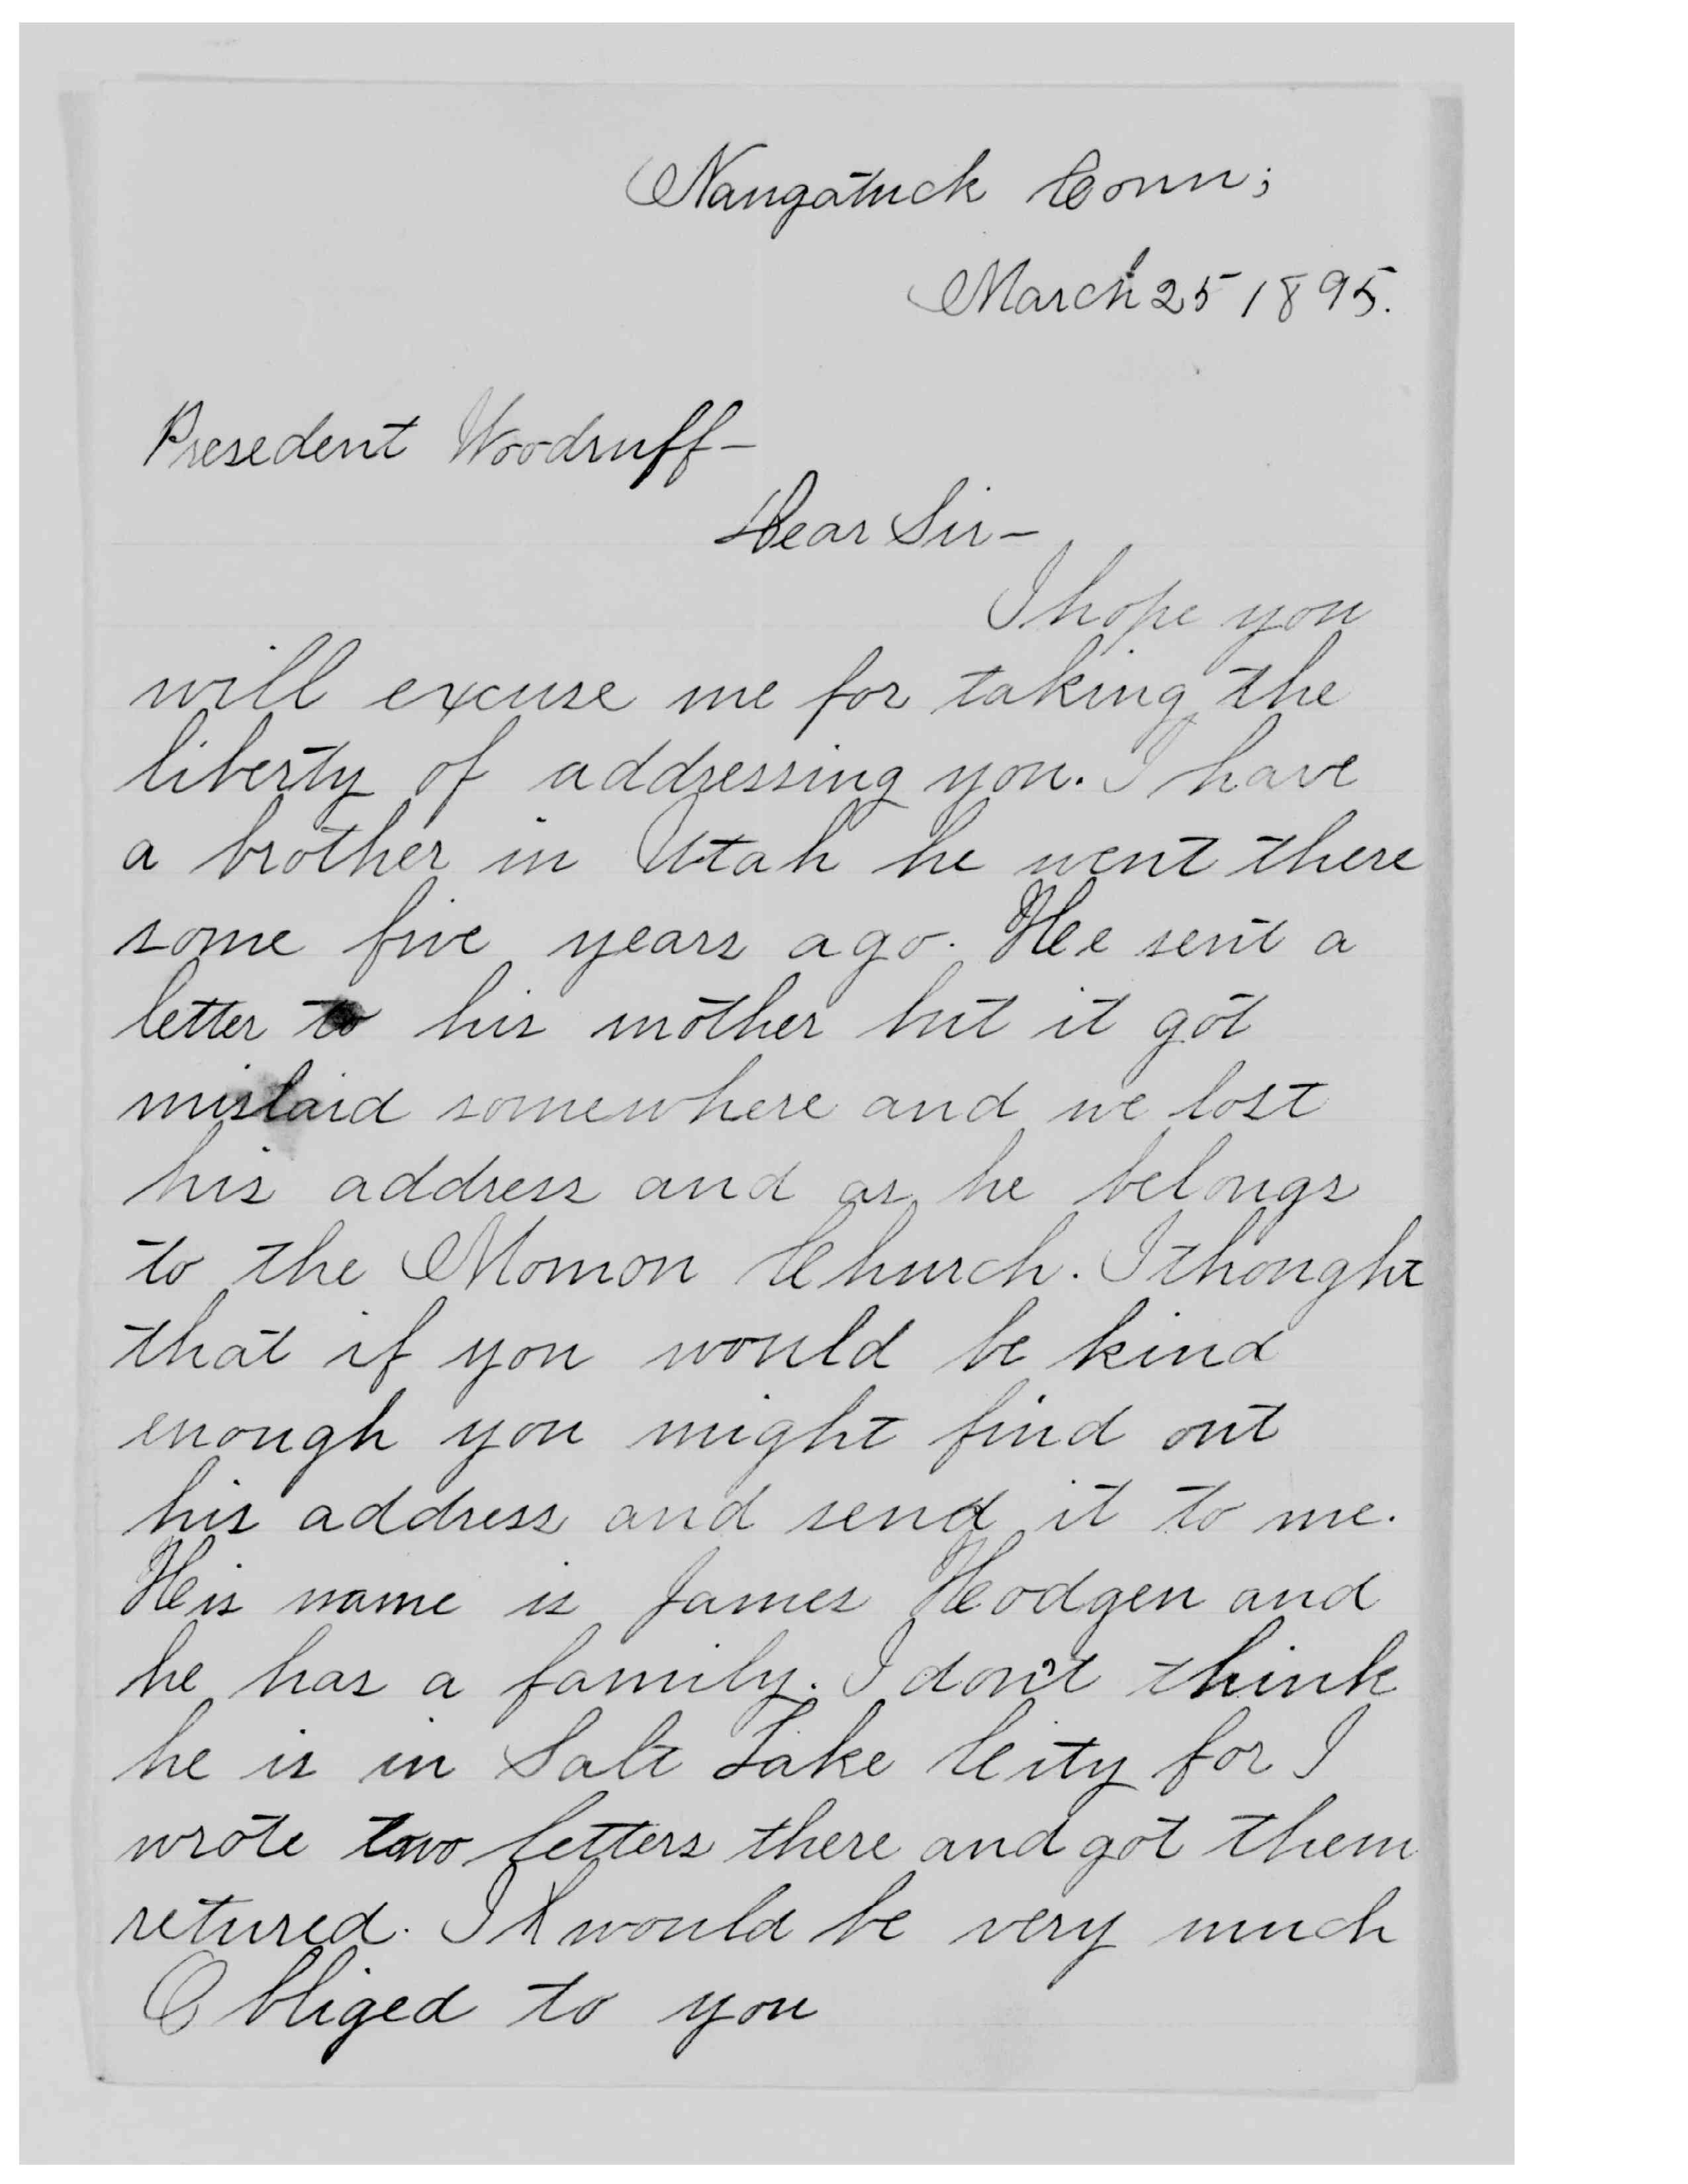 Naugatuck Conn;
March 25 1895.
Presedent Woodruff-
Dear Sir-
I hope you
will excuse me for taking the
liberty of addressing you. I have
a brother in Utah he went there
some five years ago. He sent a
letter to his mother but it got
mislaid somewhere and we lost
his address and as he belongs
to the Momon Church. I thought
that if you would be kind
enough you might find out
his address and send it to me.
His name is James Hodgen and
he has a family. I don't think
he is in Salt Lake City for I
wrote two letters there and got them
retured. I would be very much
Obliged to you